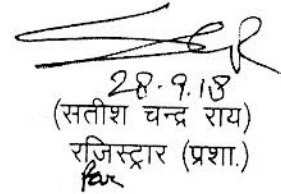 28.9.18
(सतीश चन्द्र राय)
रजिस्ट्रार (प्रशा.)